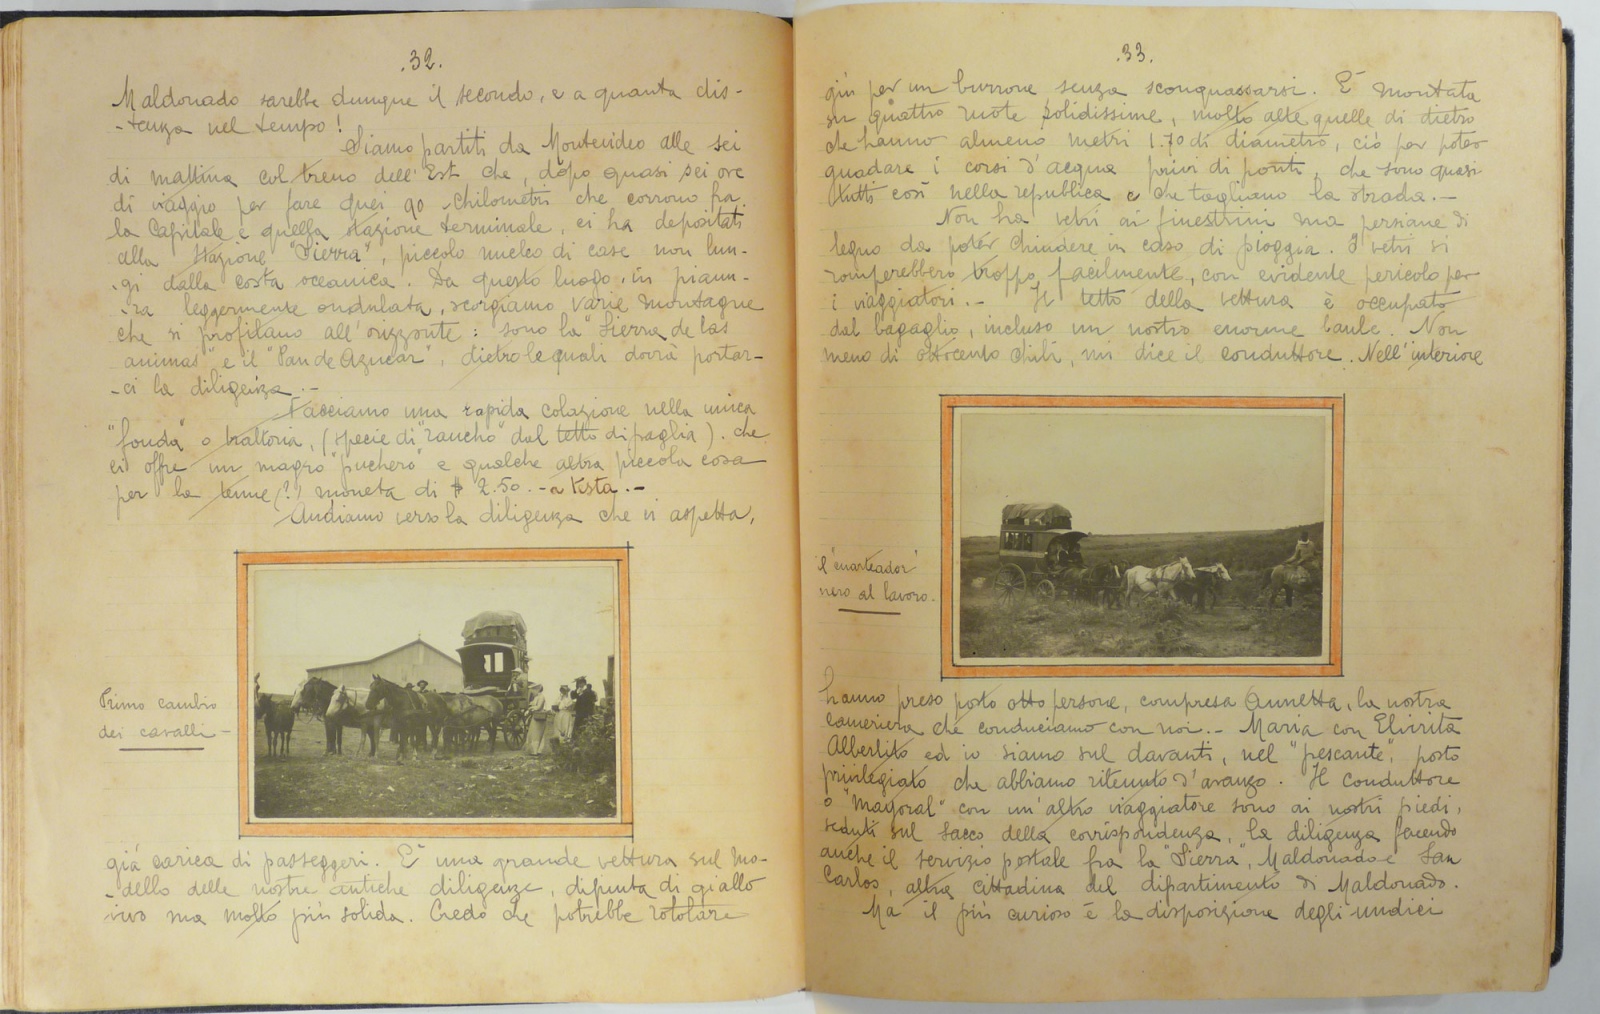 .32.
Maldonado sarebbe dunque il secondo, e a quanta dis-
-tanza nel tempo!
Siamo partiti da Montevideo alle sei
di mattina col treno dell'Est che, dopo quasi sei ore
di viaggio per fare quei 90 chilometri che corrono fra
la Capitale e quella stazione terminale, ci ha depositati
alla stazione "Sierra", piccolo nucleo di case non lun-
-gi dalla costa oceanica. Da questo luogo, in pianu-
-ra leggermente ondulata, scorgiamo varie montagne
che si profilano all'orizzonte: sono la "Sierra de las
animas" e il "Pan de Azucar", dietro le quali dovrà portar-
-ci la diligenza.-
Facciamo una rapida colazione nella unica
"fonda" o trattoria, (specie di "rancho" dal tetto di paglia). che
ci offre un magro "puchero" e qualche altra piccola cosa
per la tenue (?) moneta di $ 2.50.- a testa.-
Andiamo verso la diligenza che vi aspetta,
Primo cambio
dei cavalli -
già carica di passeggeri. E' una grande vettura sul mo-
-dello delle nostre antiche diligenze, dipinta di giallo
vivo ma molto più solida. Credo che potrebbe rotolare
.33.
giù per un burrone senza sconquassarsi. E' montata
su quattro ruote solidissime, molto alte quelle di dietro
che hanno almeno metri 1.70 di diametro, ciò per poter
guadare i corsi d'acqua privi di ponti, che sono quasi
tutti così nella repubblica e che tagliano la strada.-
Non ha vetri ai finestrini ma persiane di
legno da poter chiudere in caso di pioggia. I vetri si
romperebbero troppo facilmente, con evidente pericolo per
i viaggiatori.- Il tetto della vettura è occupato
dal bagaglio, incluso un nostro enorme baule. Non
meno di ottocento chili, mi dice il conduttore. Nell'interiore
il "cuarteador"
nero al lavoro.
hanno preso posto otto persone, compresa Annetta, la nostra
cameriera che conduciamo con noi.- Maria con Elvirita
Albertito ed io siamo sul davanti, nel "pescante", posto
privilegiato che abbiamo ritenuto d'avanzo. Il conduttore
o "Mayoral" con un'altro viaggiatore sono ai nostri piedi,
seduti sul sacco della corrispondenza, la diligenza facendo
anche il servizio postale fra la "Sierra", Maldonado e San
Carlos, altra cittadina del dipartimento di Maldonado.
Ma il più curioso è la disposizione degli undici